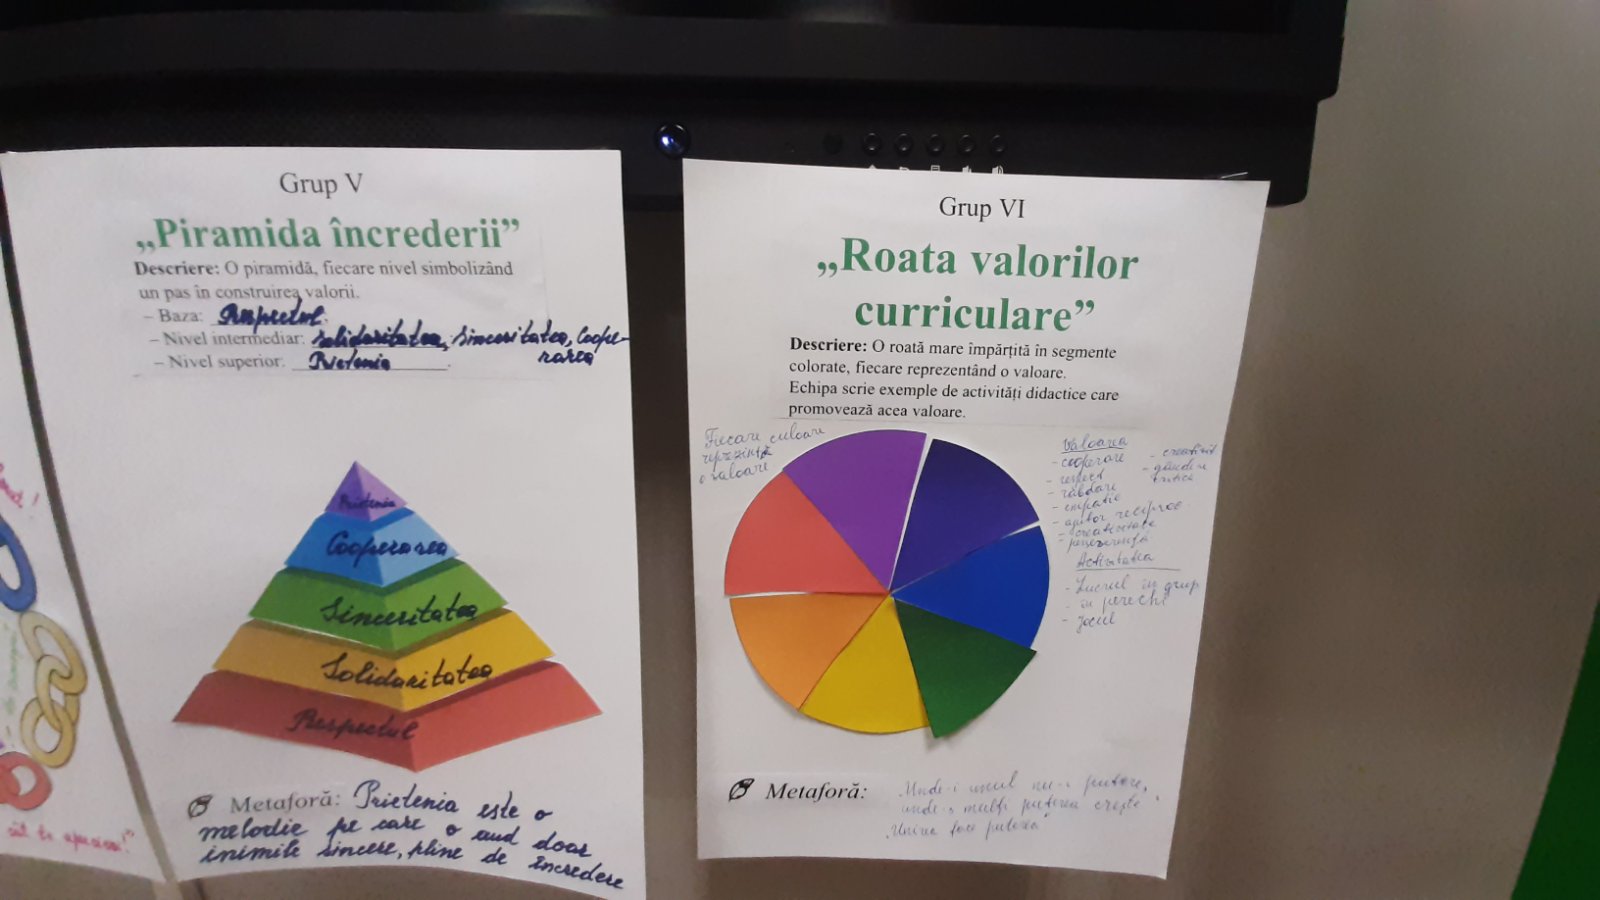 Grup V
„Piramida încrederii”
Descriere: O piramidă, fiecare nivel simbolizând
un pas în construirea valorii.
– Baza: Respectul.
– Nivel intermediar: Solidaritatea, Sinceritatea, Coope-
rarea
– Nivel superior: Prietenia.
Prietenia
Cooperarea
Sinceritatea
Solidaritatea
Respectul
Metaforă: Prietenia este o
melodie pe care o aud doar
inimile sincere, pline de încredere
Grup VI
„Roata valorilor
curriculare”
Descriere: O roată mare împărțită în segmente
colorate, fiecare reprezentând o valoare.
Echipa scrie exemple de activități didactice care
promovează acea valoare.
Fiecare culoare
reprezintă
o valoare
Valoarea
- cooperare
- respect
- răbdare
- empatie
- ajutor reciproc
- creativitate
- perseverență
- gândire
critica
Activitatea
- Lucrul în grup
- în perechi
- Jocul
Metaforă: Unde-i unul nu-i putere,
unde-s mulți puterea crește
„Unirea face puterea”